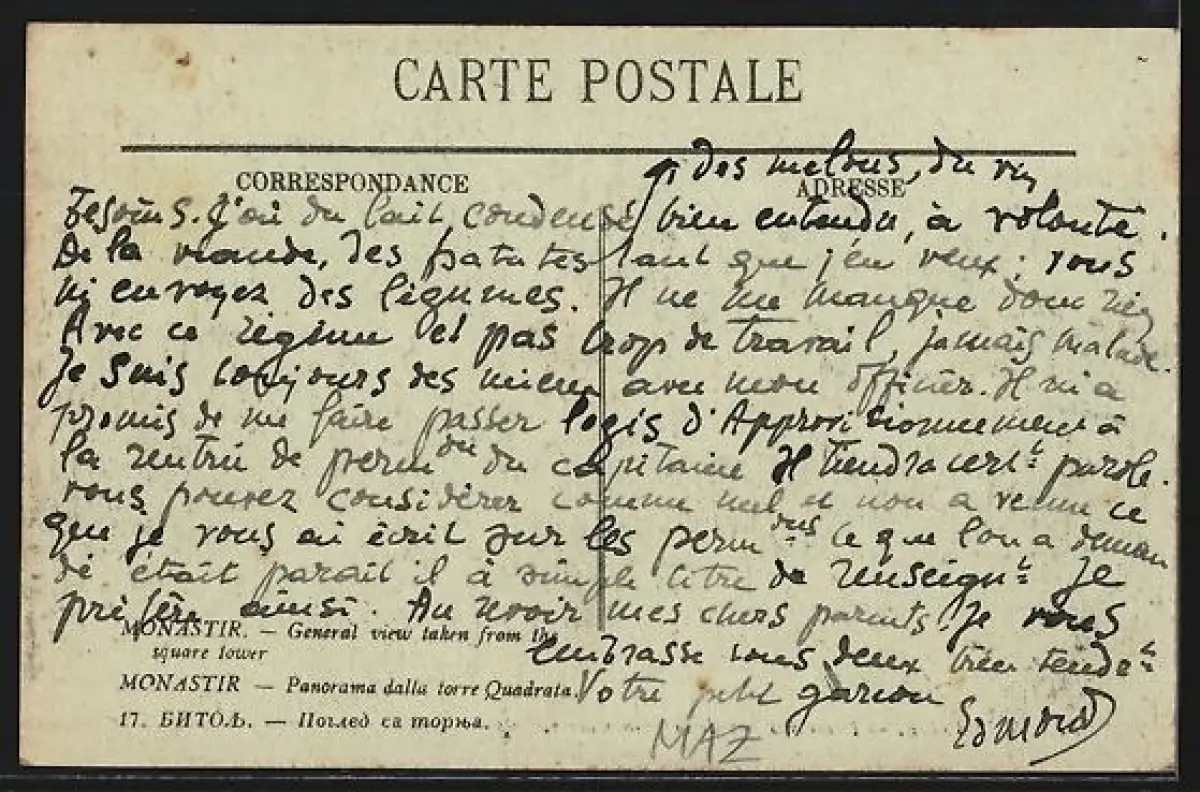 CARTE POSTALE
CORRESPONDANCE
ADRESSE
des melons, du vin
besoins. J'ai du lait condensé bien entendu, à volonté.
De la viande, des patates tant que j'en veux; vous
m'envoyez des légumes. Il ne me manque donc rien
Avec ce régime et pas trop de travail, jamais malade.
Je suis toujours des mieux avec mon officier. Il m'a
promis de me faire passer logis d'Approvisionnement à
la rentrée de perm du capitaine Il tiendra cert.t parole.
vous pouvez considérer comme nul et non avenu ce
que je vous ai écrit sur les perm.ons ce que l'on a deman
dé était parait il à simple titre de renseign.t Je
préfère ainsi. Au revoir mes chers parents. Je vous
embrasse tous deux bien tendr.t
Votre petit garçon
Edmond
MONASTIR. — General view taken from the
square tower
MONASTIR — Panorama dalla torre Quadrata.
17. БИТОЉ. — Поглед са торња.
MAZ